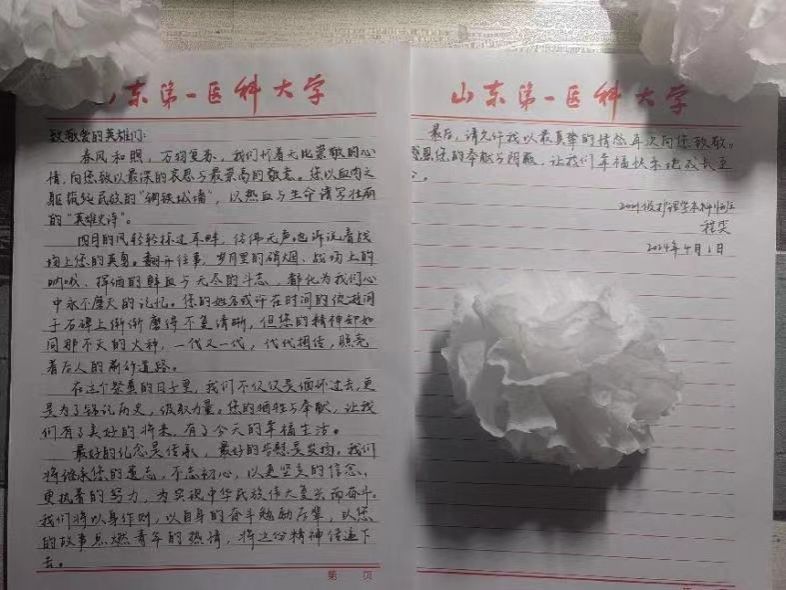 山东第一医科大学
致敬爱的英雄们:
春风和煦,万物复苏,我们怀着无比崇敬的心
情,向您致以最深的哀思与最崇高的敬意。您以血肉之
躯筑起民族的“钢铁城墙”,以热血与生命谱写壮丽
的“英雄史诗”。
四月的风轻轻拂过耳畔,仿佛无声地诉说着战
场上您的英勇。翻开往事,岁月里的硝烟、战场上的
呐喊、挥洒的鲜血与无尽的斗志,都化为我们心
中永不磨灭的记忆。您的姓名或许在时间的流逝间
于石碑上渐渐磨得不复清晰,但您的精神却如
同那不灭的火种,一代又一代,代代相传,照亮
着后人的前行道路。
在这个祭奠的日子里,我们不仅仅是缅怀过去,更
是为了铭记历史,汲取力量。您的牺牲与奉献,让我
们有了美好的将来,有了今天的幸福生活。
最好的纪念是传承,最好的告慰是发扬。我们
将继承您的遗志,不忘初心,以更坚定的信念、
更执着的努力,为实现中华民族伟大复兴而奋斗。
我们将以身作则,以自身的奋斗勉励后辈,以您
的故事点燃青年的热情,将这份精神传递下
去。
第 页
山东第一医科大学
最后,请允许我以最真挚的情感再次向您致敬。
您的奉献与,让我们幸福快乐地成长至
2021级护理学本科班
2024年4月1日